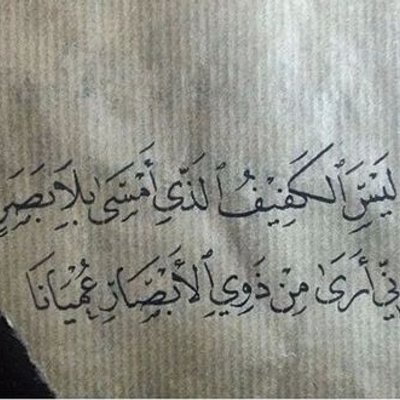 لَيْسَ ٱلكَفِيْفُ ٱلَذِّي أَمْسَىٰ بِلَا بَصَرٍ
إِنِّي أَرَىٰ مِنْ ذَوِي ٱلأَبْصَارِ عُمْيَانَا